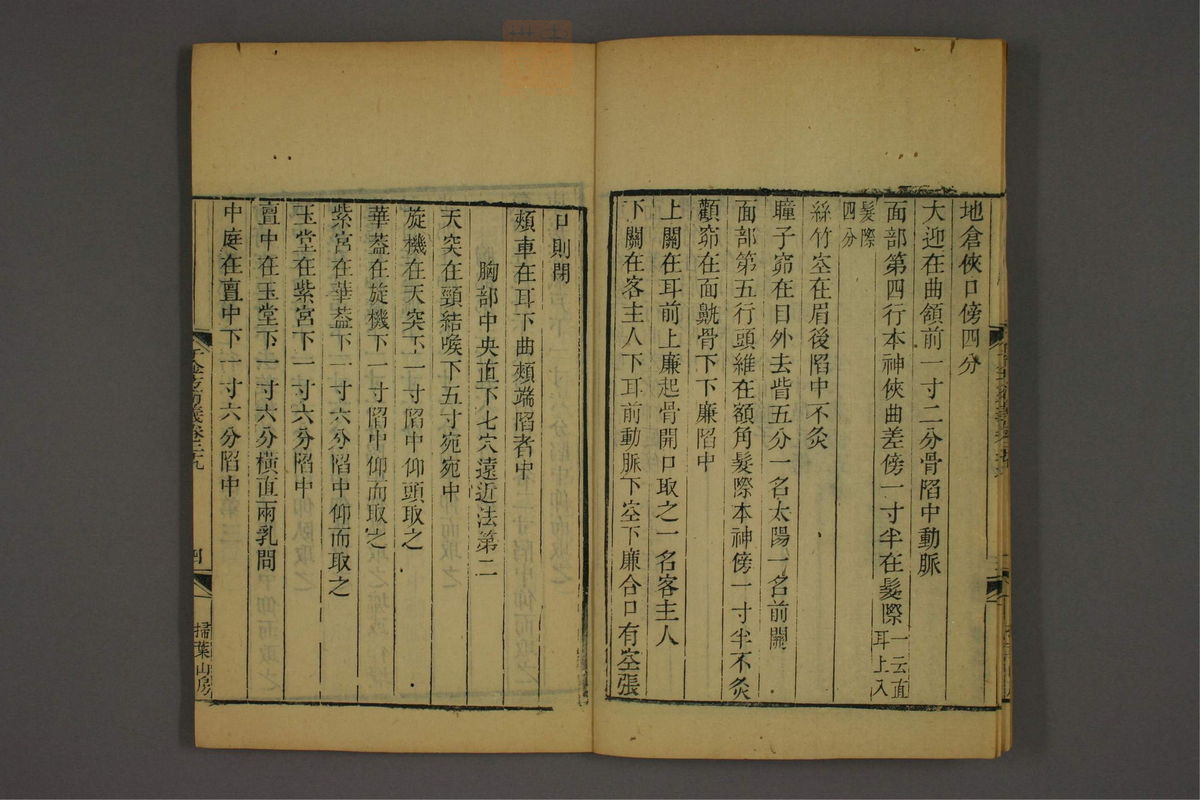 地倉俠口傍四分
大迎在曲頷前一寸二分骨陷中動脈
面部第四行本神俠曲差傍一寸半在髮際一云直耳上入
髮際四分
絲竹空在眉後陷中不灸
瞳子窌在目外去眥五分一名太陽一名前關
面部第五行頭維在額角髮際本神傍一寸半不灸
顴窌在面鼽骨下下廉陷中
上關在耳前上廉起骨開口取之一名客主人
下關在客主人下耳前動脈下空下廉合口有空張
口則閉
頰車在耳下曲頰端陷者中
胸部中央直下七穴遠近法第二
天突在頸結喉下五寸宛宛中
旋機在天突下一寸陷中仰頭取之
華蓋在旋機下一寸陷中仰而取之
紫宮在華蓋下一寸六分陷中仰而取之
玉堂在紫宮下一寸六分陷中
亶中在玉堂下一寸六分橫直兩乳間
中庭在亶中下一寸六分陷中
千金方衍義卷三十九
四
掃葉山房